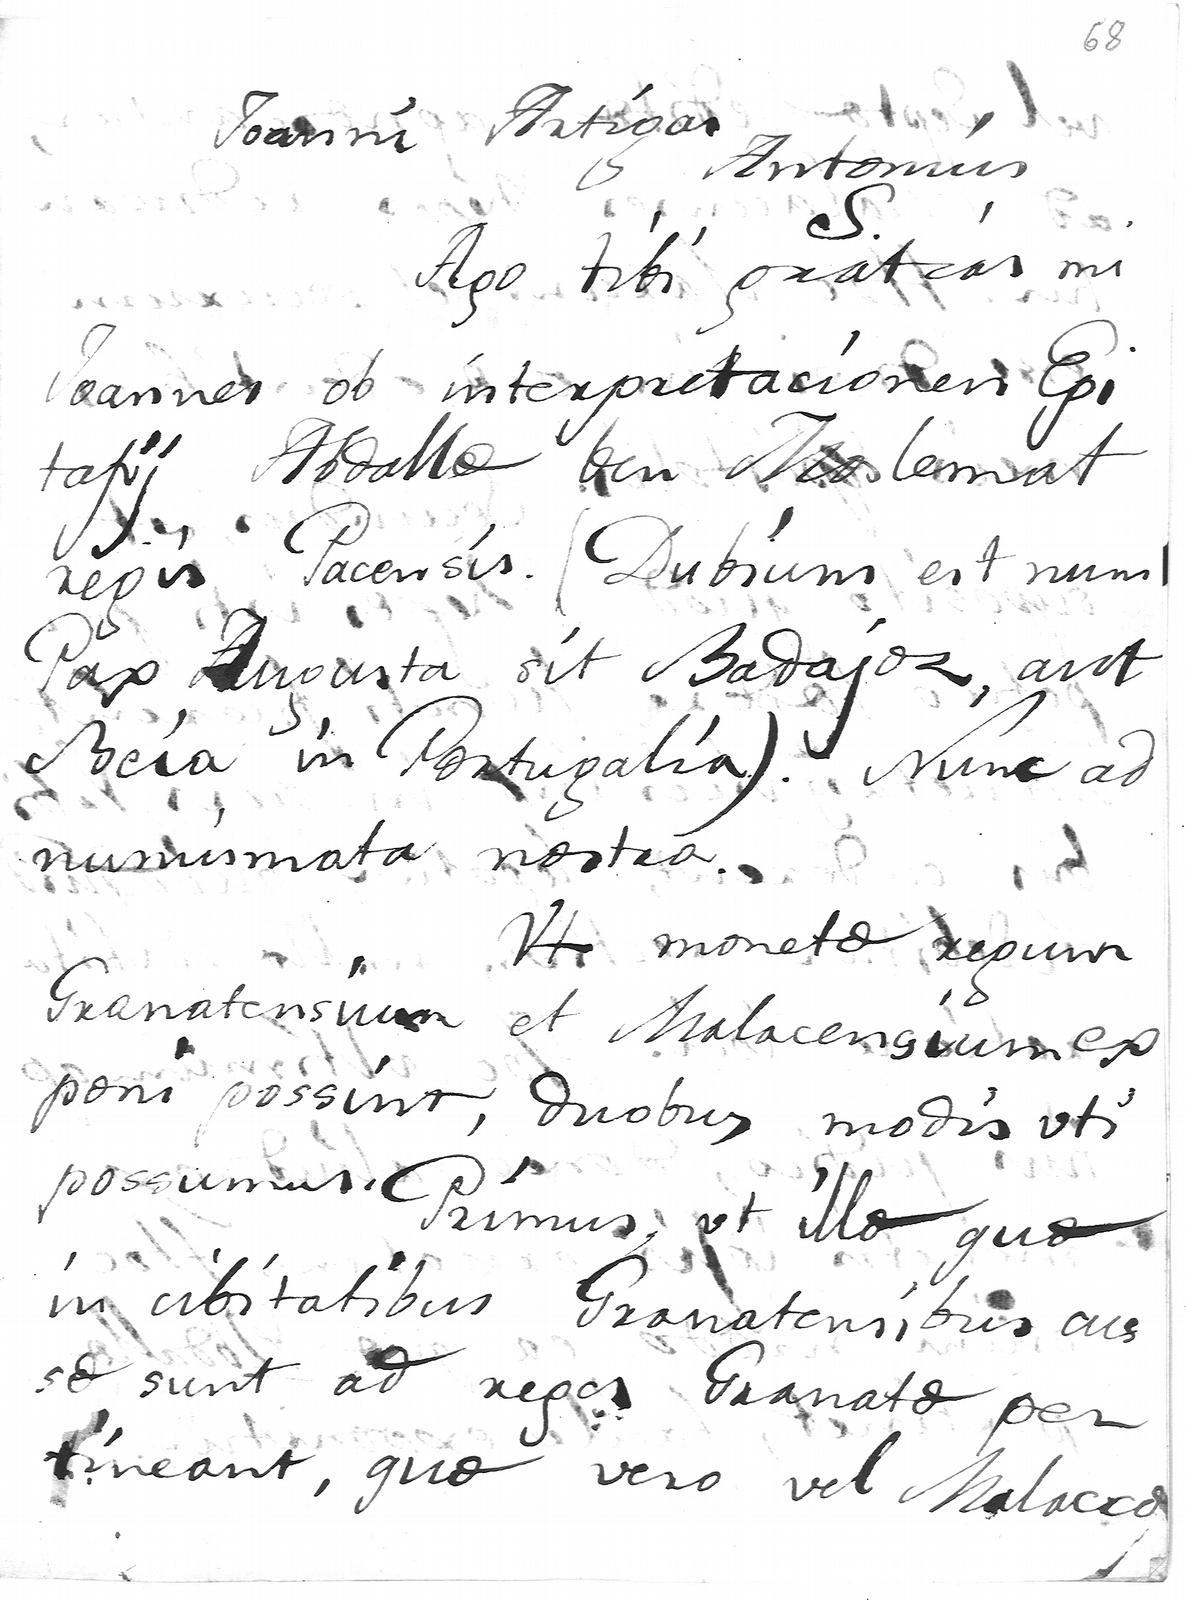 68
Joanni Artigas
Antonius
S.
Ago tibi gratias mi
Joannes ob interpretacionem Epi
tafij Abdallæ ben Moslemat
regis Pacensis. (Dubium est num
Pax Augusta sit Badajoz, aut
Beia in Portugalia). Nunc ad
numismata nostra.
Vt monetæ regum
Granatensium et Malacensium ex
poni possint, duobus modis vti
possumus. Primus, vt illæ quæ
in cibitatibus Granatensibus cus
sæ sunt ad reges Granatæ per
tineant, quæ vero vel Malacæ